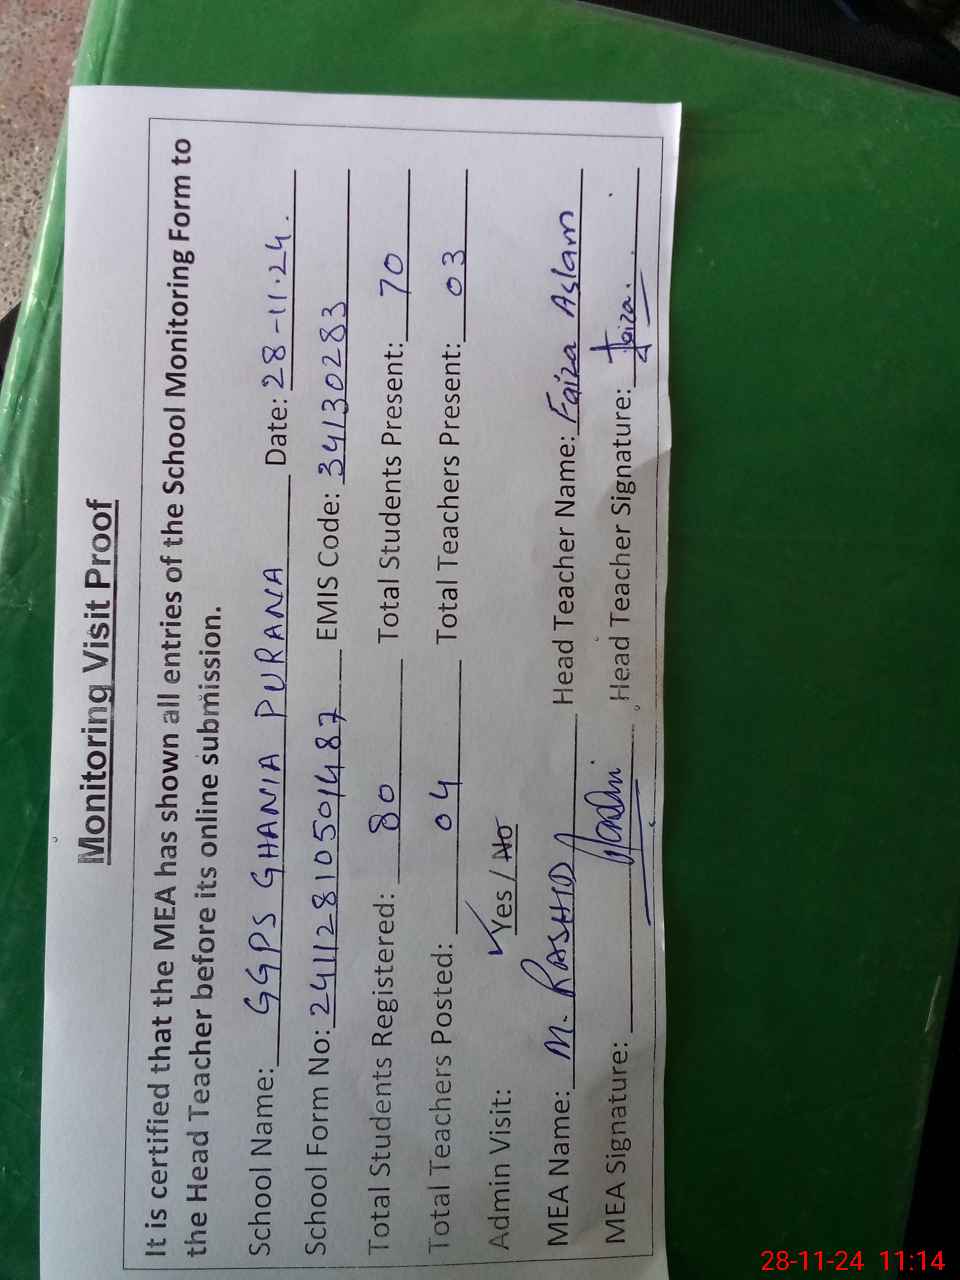 Monitoring Visit Proof
It is certified that the MEA has shown all entries of the School Monitoring Form to
the Head Teacher before its online submission.
School Name: GGPS GHANIA PURANA Date: 28-11-24.
School Form No: 24112810501487 EMIS Code: 34130283
Total Students Registered: 80 Total Students Present: 70
Total Teachers Posted: 04 Total Teachers Present: 03
Admin Visit: ✓Yes / No
MEA Name: M. RASHID Head Teacher Name: Faiza Aslam
MEA Signature: Head Teacher Signature: Faiza.
28-11-24 11:14